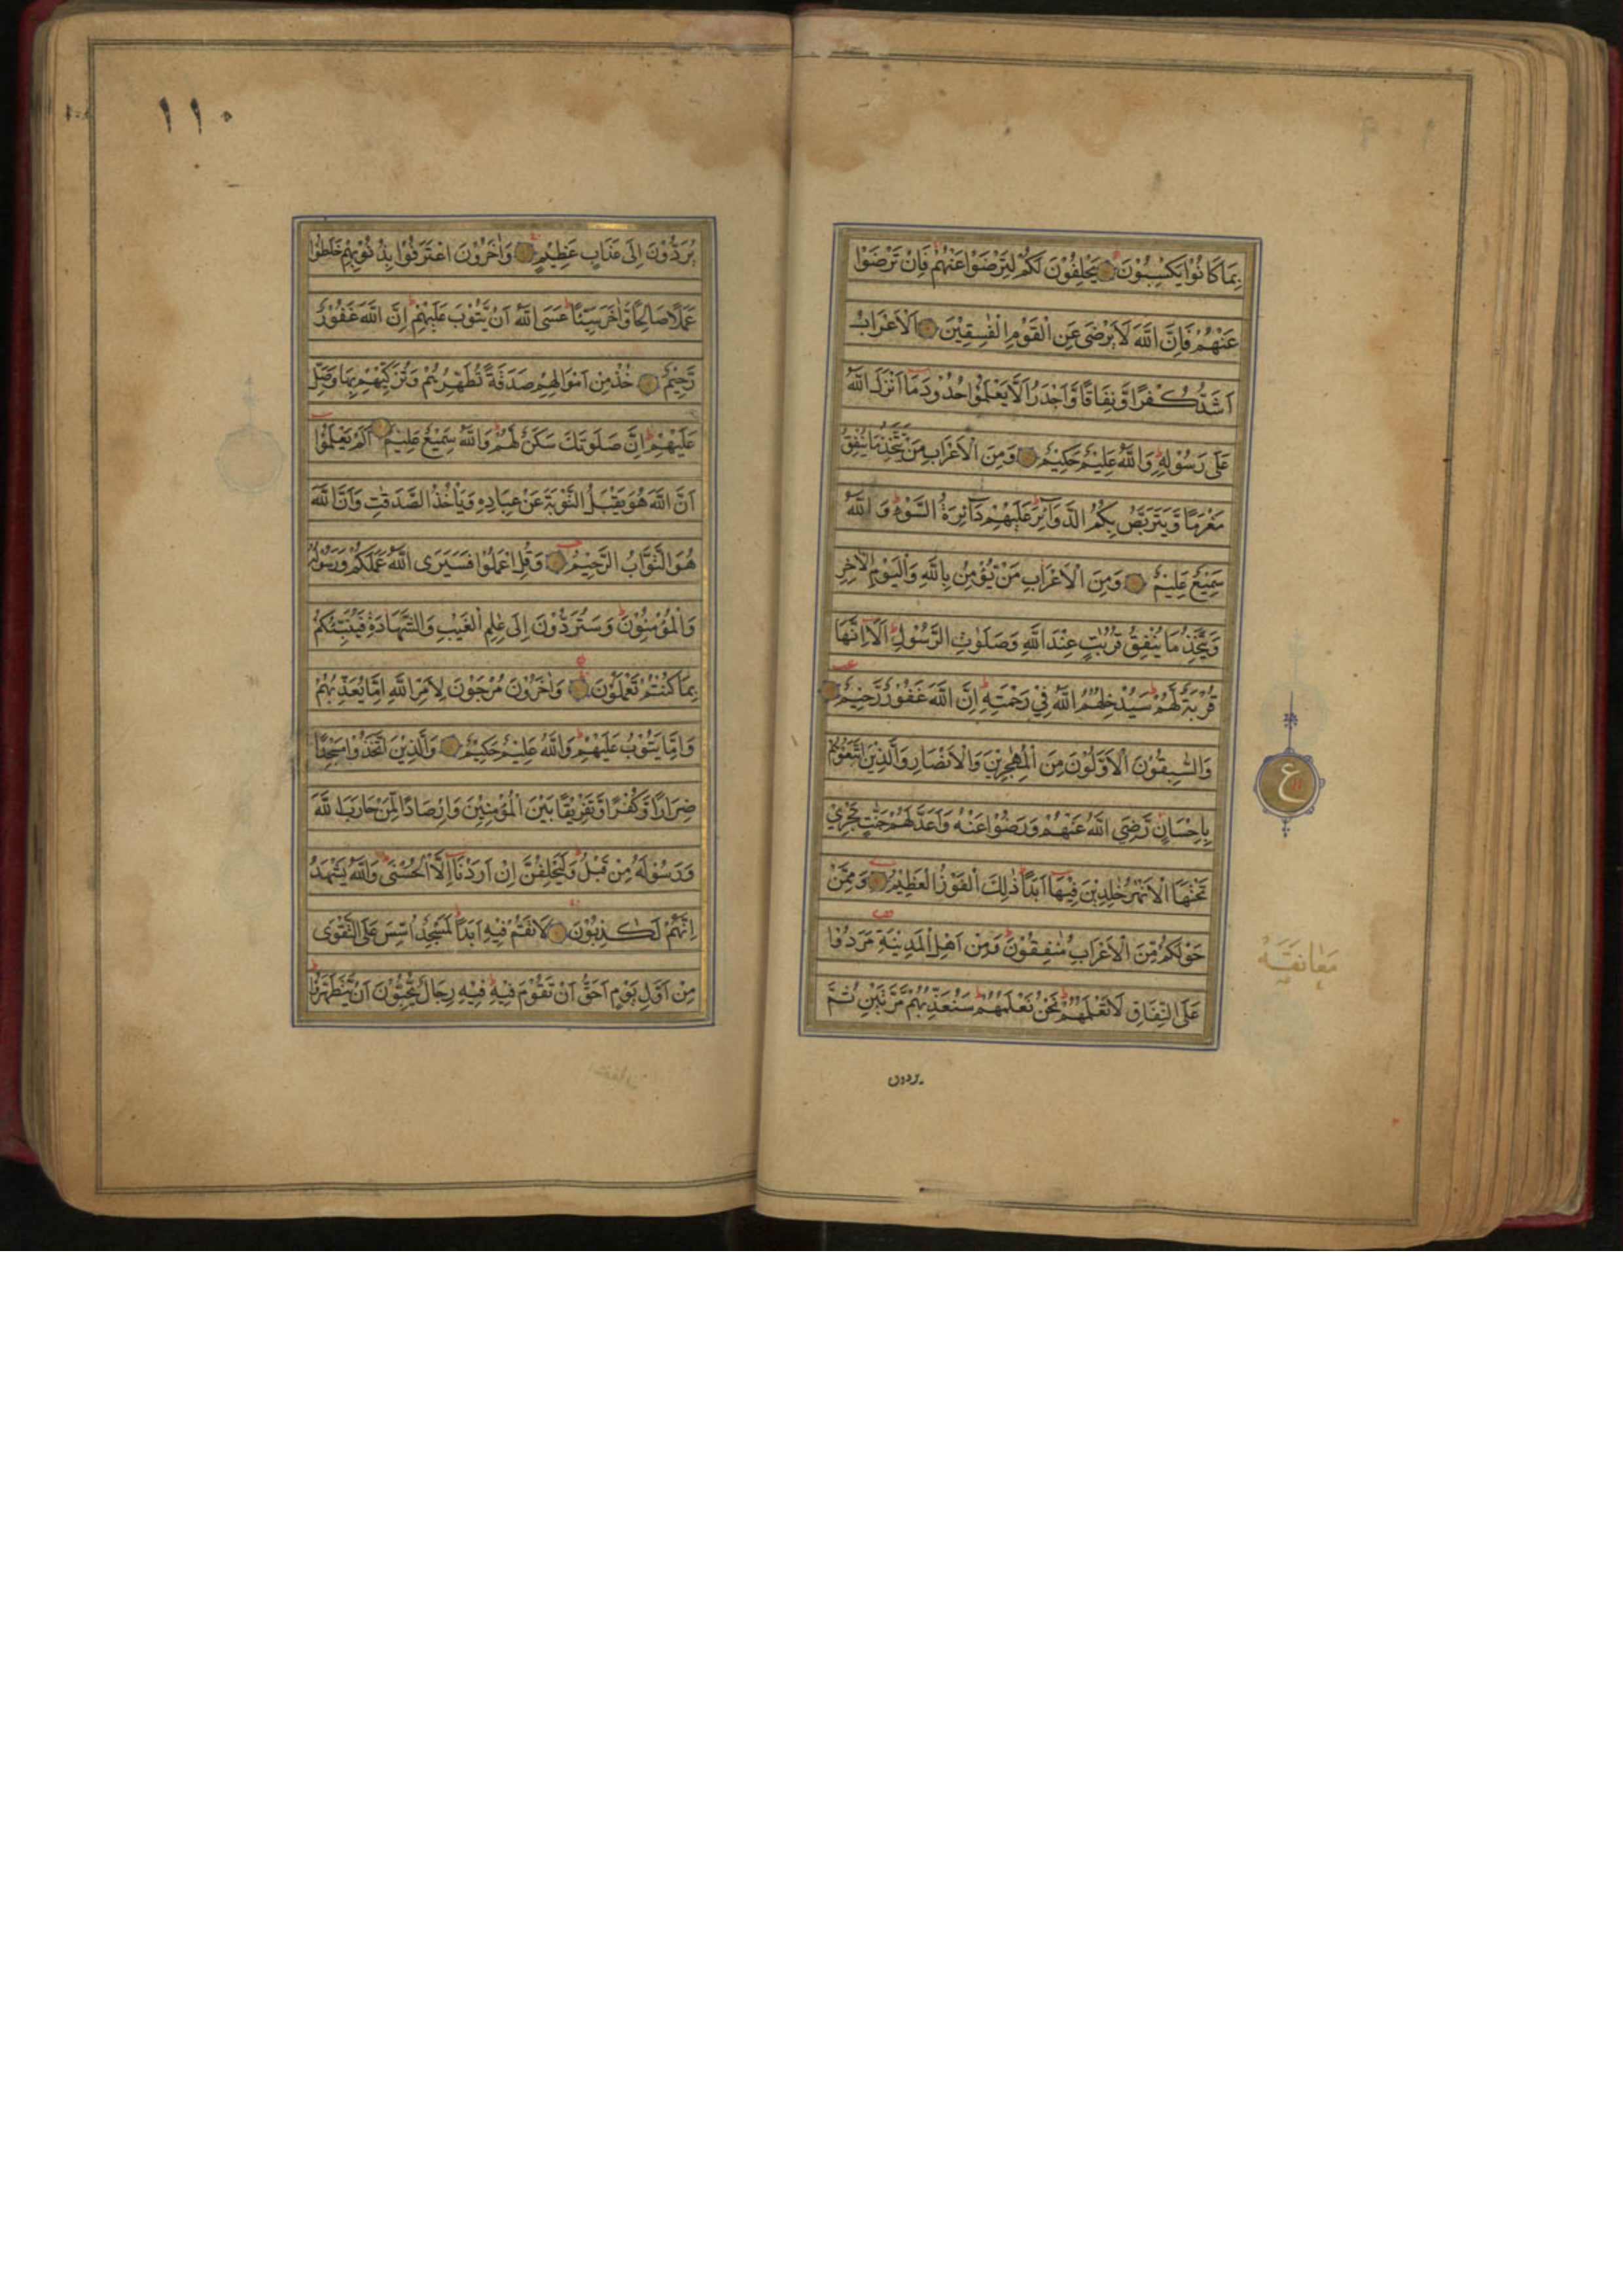 بِمَا كَانُوْا يَكْسِبُوْنَ يَحْلِفُوْنَ لَكُمْ لِتَرْضَوْا عَنْهُمْ فَاِنْ تَرْضَوْا
عَنْهُمْ فَاِنَّ اللّٰهَ لَا يَرْضٰى عَنِ الْقَوْمِ الْفٰسِقِيْنَ اَلْاَعْرَابُ
اَشَدُّ كُفْرًا وَّنِفَاقًا وَّاَجْدَرُ اَلَّا يَعْلَمُوْا حُدُوْدَ مَا اَنْزَلَ اللّٰهُ
عَلٰى رَسُوْلِهٖ وَاللّٰهُ عَلِيْمٌ حَكِيْمٌ وَمِنَ الْاَعْرَابِ مَنْ يَّتَّخِذُ مَا يُنْفِقُ
مَغْرَمًا وَّيَتَرَبَّصُ بِكُمُ الدَّوَآئِرَ عَلَيْهِمْ دَآئِرَةُ السَّوْءِ وَاللّٰهُ
سَمِيْعٌ عَلِيْمٌ وَمِنَ الْاَعْرَابِ مَنْ يُّؤْمِنُ بِاللّٰهِ وَالْيَوْمِ الْاٰخِرِ
وَيَتَّخِذُ مَا يُنْفِقُ قُرُبٰتٍ عِنْدَ اللّٰهِ وَصَلَوٰتِ الرَّسُوْلِ اَلَا اِنَّهَا
قُرْبَةٌ لَّهُمْ سَيُدْخِلُهُمُ اللّٰهُ فِيْ رَحْمَتِهٖ اِنَّ اللّٰهَ غَفُوْرٌ رَّحِيْمٌ
وَالسّٰبِقُوْنَ الْاَوَّلُوْنَ مِنَ الْمُهٰجِرِيْنَ وَالْاَنْصَارِ وَالَّذِيْنَ اتَّبَعُوْهُمْ
بِاِحْسَانٍ رَّضِيَ اللّٰهُ عَنْهُمْ وَرَضُوْا عَنْهُ وَاَعَدَّ لَهُمْ جَنّٰتٍ تَجْرِيْ
تَحْتَهَا الْاَنْهٰرُ خٰلِدِيْنَ فِيْهَا اَبَدًا ذٰلِكَ الْفَوْزُ الْعَظِيْمُ وَمِمَّنْ
حَوْلَكُمْ مِّنَ الْاَعْرَابِ مُنٰفِقُوْنَ وَمِنْ اَهْلِ الْمَدِيْنَةِ مَرَدُوْا
عَلَى النِّفَاقِ لَا تَعْلَمُهُمْ نَحْنُ نَعْلَمُهُمْ سَنُعَذِّبُهُمْ مَّرَّتَيْنِ ثُمَّ
يردون
ع
معانقة
١١٠
يُرَدُّوْنَ اِلٰى عَذَابٍ عَظِيْمٍ وَاٰخَرُوْنَ اعْتَرَفُوْا بِذُنُوْبِهِمْ خَلَطُوْا
عَمَلًا صَالِحًا وَّاٰخَرَ سَيِّئًا عَسَى اللّٰهُ اَنْ يَّتُوْبَ عَلَيْهِمْ اِنَّ اللّٰهَ غَفُوْرٌ
رَّحِيْمٌ خُذْ مِنْ اَمْوَالِهِمْ صَدَقَةً تُطَهِّرُهُمْ وَتُزَكِّيْهِمْ بِهَا وَصَلِّ
عَلَيْهِمْ اِنَّ صَلٰوتَكَ سَكَنٌ لَّهُمْ وَاللّٰهُ سَمِيْعٌ عَلِيْمٌ اَلَمْ يَعْلَمُوْا
اَنَّ اللّٰهَ هُوَ يَقْبَلُ التَّوْبَةَ عَنْ عِبَادِهٖ وَيَاْخُذُ الصَّدَقٰتِ وَاَنَّ اللّٰهَ
هُوَ التَّوَّابُ الرَّحِيْمُ وَقُلِ اعْمَلُوْا فَسَيَرَى اللّٰهُ عَمَلَكُمْ وَرَسُوْلُهٗ
وَالْمُؤْمِنُوْنَ وَسَتُرَدُّوْنَ اِلٰى عٰلِمِ الْغَيْبِ وَالشَّهَادَةِ فَيُنَبِّئُكُمْ
بِمَا كُنْتُمْ تَعْمَلُوْنَ وَاٰخَرُوْنَ مُرْجَوْنَ لِاَمْرِ اللّٰهِ اِمَّا يُعَذِّبُهُمْ
وَاِمَّا يَتُوْبُ عَلَيْهِمْ وَاللّٰهُ عَلِيْمٌ حَكِيْمٌ وَالَّذِيْنَ اتَّخَذُوْا مَسْجِدًا
ضِرَارًا وَّكُفْرًا وَّتَفْرِيْقًا بَيْنَ الْمُؤْمِنِيْنَ وَاِرْصَادًا لِّمَنْ حَارَبَ اللّٰهَ
وَرَسُوْلَهٗ مِنْ قَبْلُ وَلَيَحْلِفُنَّ اِنْ اَرَدْنَا اِلَّا الْحُسْنٰى وَاللّٰهُ يَشْهَدُ
اِنَّهُمْ لَكٰذِبُوْنَ لَا تَقُمْ فِيْهِ اَبَدًا لَمَسْجِدٌ اُسِّسَ عَلَى التَّقْوٰى
مِنْ اَوَّلِ يَوْمٍ اَحَقُّ اَنْ تَقُوْمَ فِيْهِ فِيْهِ رِجَالٌ يُّحِبُّوْنَ اَنْ يَّتَطَهَّرُوْا